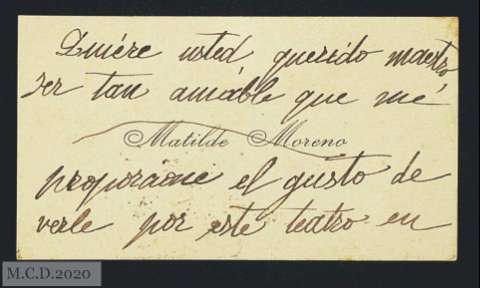 Quiére usted querido maestro
ser tan amáble que mé
Matilde Moreno
proporcione el gusto de
verle por esté teatro en
M.C.D.2020